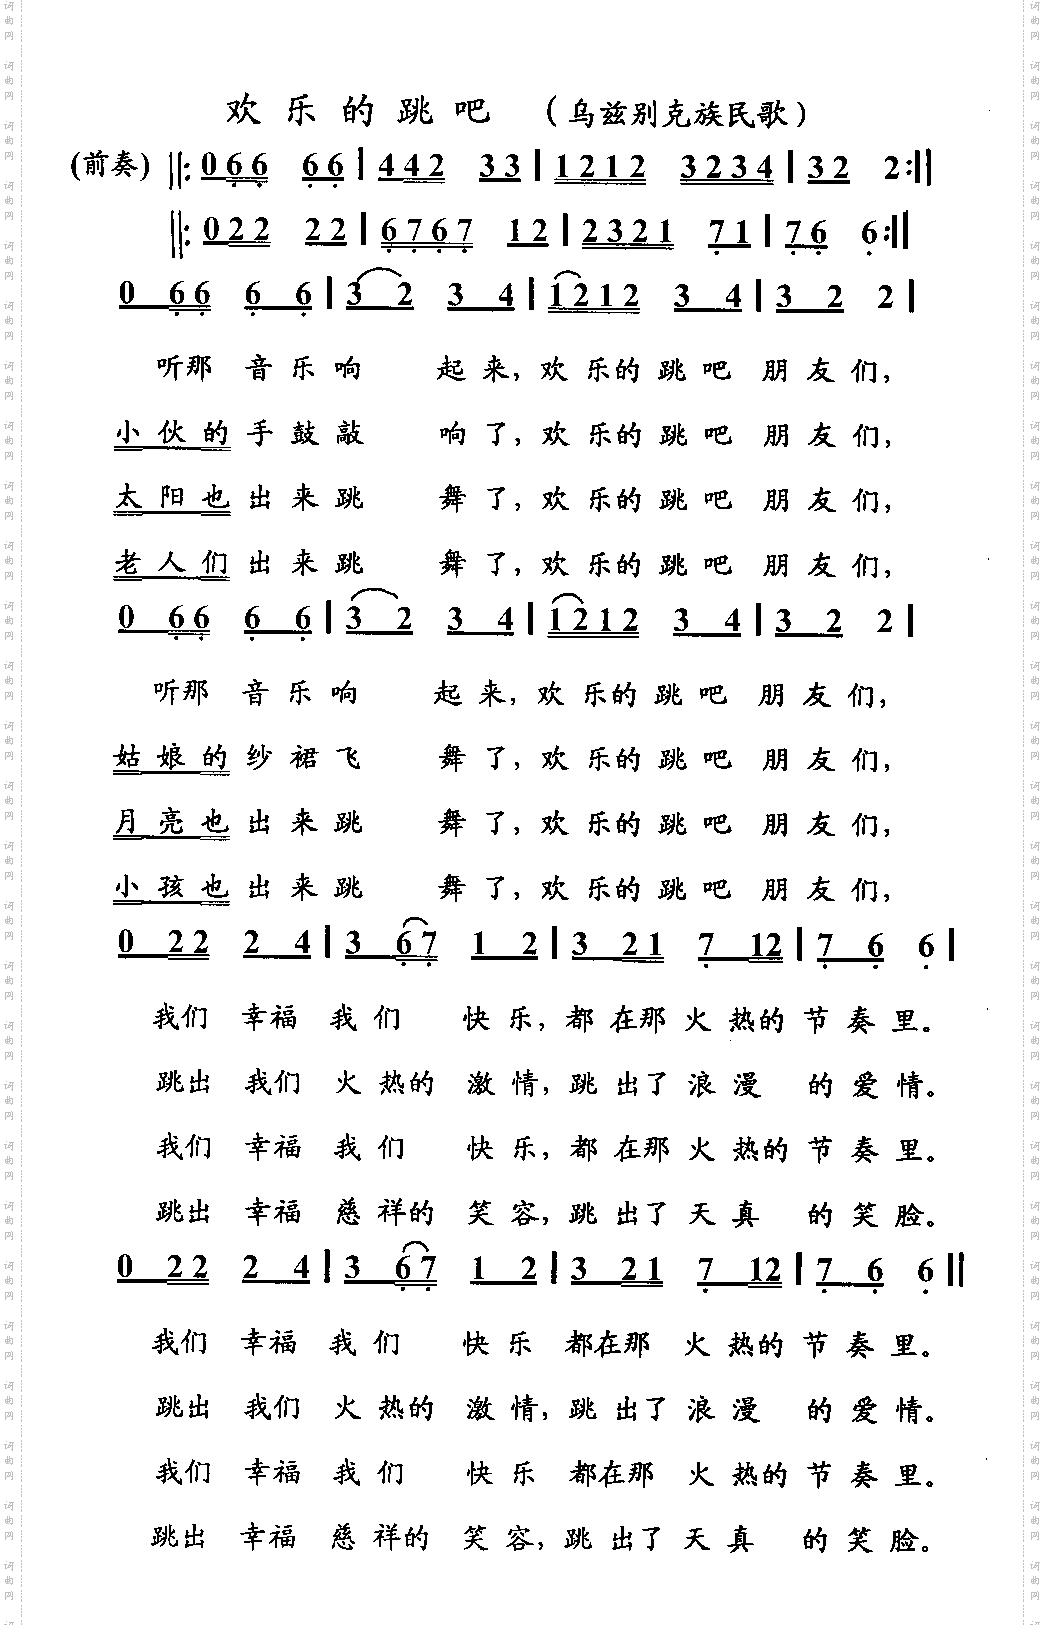 欢乐的跳吧 （乌兹别克族民歌）
(前奏) ‖: 0 6 6 6 6 | 4 4 2 3 3 | 1 2 1 2 3 2 3 4 | 3 2 2 :‖
‖: 0 2 2 2 2 | 6 7 6 7 1 2 | 2 3 2 1 7 1 | 7 6 6 :‖
0 6 6 6 6 | 3 2 3 4 | 1 2 1 2 3 4 | 3 2 2 |
听那 音乐响 起来，欢乐的跳吧 朋友们，
小伙的手鼓敲 响了，欢乐的跳吧 朋友们，
太阳也出来跳 舞了，欢乐的跳吧 朋友们，
老人们出来跳 舞了，欢乐的跳吧 朋友们，
0 6 6 6 6 | 3 2 3 4 | 1 2 1 2 3 4 | 3 2 2 |
听那 音乐响 起来，欢乐的跳吧 朋友们，
姑娘的纱裙飞 舞了，欢乐的跳吧 朋友们，
月亮也出来跳 舞了，欢乐的跳吧 朋友们，
小孩也出来跳 舞了，欢乐的跳吧 朋友们，
0 2 2 2 4 | 3 6 7 1 2 | 3 2 1 7 1 2 | 7 6 6 |
我们 幸福 我们 快乐，都在那火热的节奏里。
跳出 我们 火热的 激情，跳出了浪漫 的爱情。
我们 幸福 我们 快乐，都在那火热的节奏里。
跳出 幸福 慈祥的 笑容，跳出了天真 的笑脸。
0 2 2 2 4 | 3 6 7 1 2 | 3 2 1 7 1 2 | 7 6 6 ‖
我们 幸福 我们 快乐 都在那 火热的节奏里。
跳出 我们 火热的 激情，跳出了浪漫 的爱情。
我们 幸福 我们 快乐 都在那 火热的节奏里。
跳出 幸福 慈祥的 笑容，跳出了天真 的笑脸。
词曲网